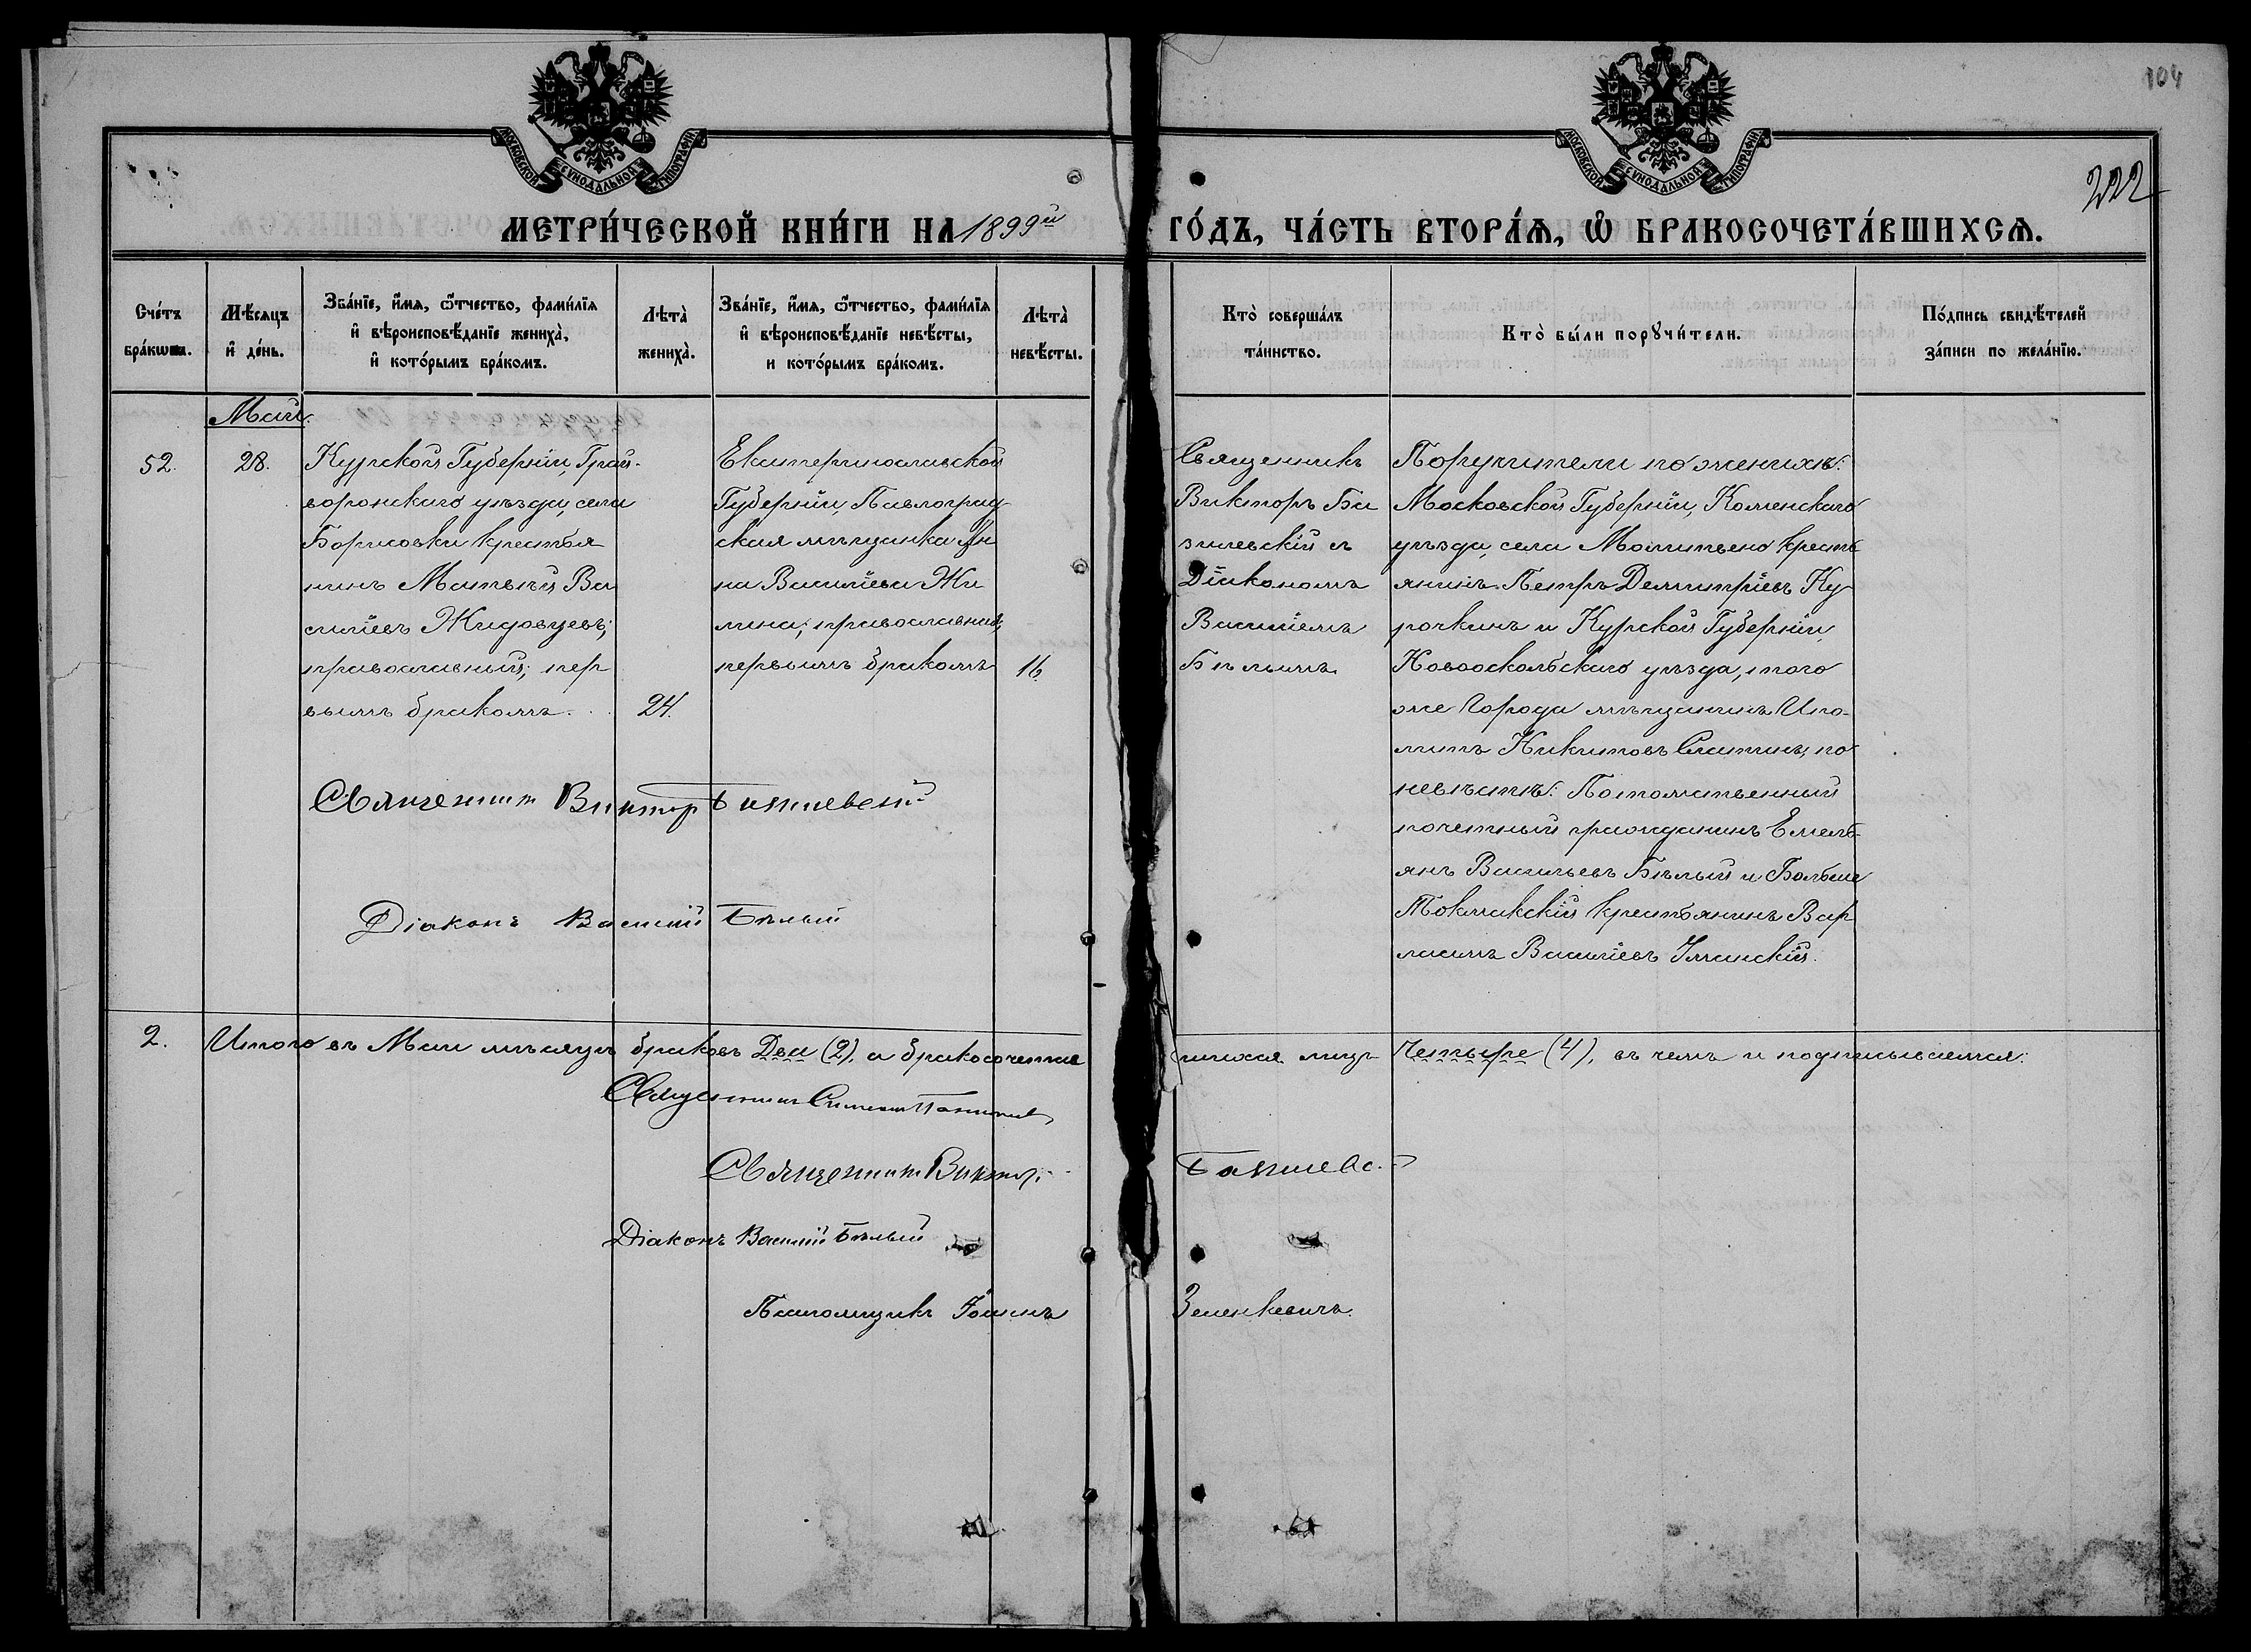 104
МОСКОВСКОЙ СѴНОДАЛЬНОЙ ТИПОГРАФІИ
МОСКОВСКОЙ СѴНОДАЛЬНОЙ ТИПОГРАФІИ
222
МЕТРИ́ЧЕСКОЙ КНИ́ГИ НА 1899й ГО́ДЪ, ЧА́СТЬ ВТОРА́Ѧ, Ѡ҆ БРАКОСОЧЕТА́ВШИХСѦ.
Сче́тъ
бра́кѡвъ.
Мѣ́сяцъ
и҆ де́нь.
Зва́нїе, и҆́мя, ѻ҆́тчество, фами́лїя
и҆ вѣроисповѣ́данїе жениха̀,
и҆ кото́рымъ бра́комъ.
Лѣта̀
жениха̀.
Зва́нїе, и҆́мя, ѻ҆́тчество, фами́лїя
и҆ вѣроисповѣ́данїе невѣ́сты,
и кото́рымъ бра́комъ.
Лѣта̀
невѣ́сты.
Кто̀ соверша́лъ
та́инство.
Кто̀ бы́ли порꙋчи́тели.
По́дпись свидѣ́телей
за́писи по жела́нїю.
Май.
52.
28.
Курской Губерніи, Грай-
воронскаго уѣзда, села
Борисовки крестья
нинъ Матвѣй Ва
силіевъ Жидовцевъ;
православный; пер
вымъ бракомъ.
24.
Екатеринославской
Губерніи, Павлоград
ская мѣщанка Ан
на Василіева Жи
лина; православная;
первымъ бракомъ
16.
Священникъ
Викторъ Ба
зилевскій съ
Діакономъ
Василіемъ
Бѣлымъ.
Поручители по женихѣ:
Московской Губерніи, Коломенскаго
уѣзда, села крестъ
янинъ Петръ Демитріевъ Ку
рочкинъ и Курской Губерніи,
Новооскольскаго уѣзда, того
же города мѣщанинъ Ипо-
литъ Никитовъ по
невѣстѣ: Потомственный
почетный гражданинъ Емель-
янъ Васильевъ Бѣлый и Больше
Токмакскій крестьянинъ Вар
лаамъ Василіевъ Уманскій.
Священникъ Викторъ Базилевскій
Діаконъ Василій Бѣлый
2. Итого въ Маѣ мѣсяцѣ браковъ Два (2), а бракосочетав
шихся лицъ Четыре (4), въ чемъ и подписываемся:
Священникъ Симеонъ
Священникъ Викторъ Базилевс.
Діаконъ Василій Бѣлый
Псаломщикъ Іоаннъ Зеленкевичъ.